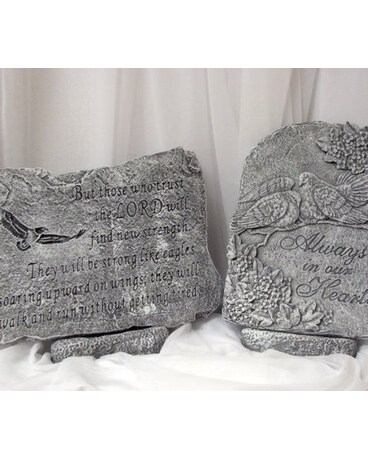 But those who trust
the LORD will
find new strength.
They will be strong like eagles
soaring upward on wings; they will
walk and run without getting tired.
Always
in our
Hearts